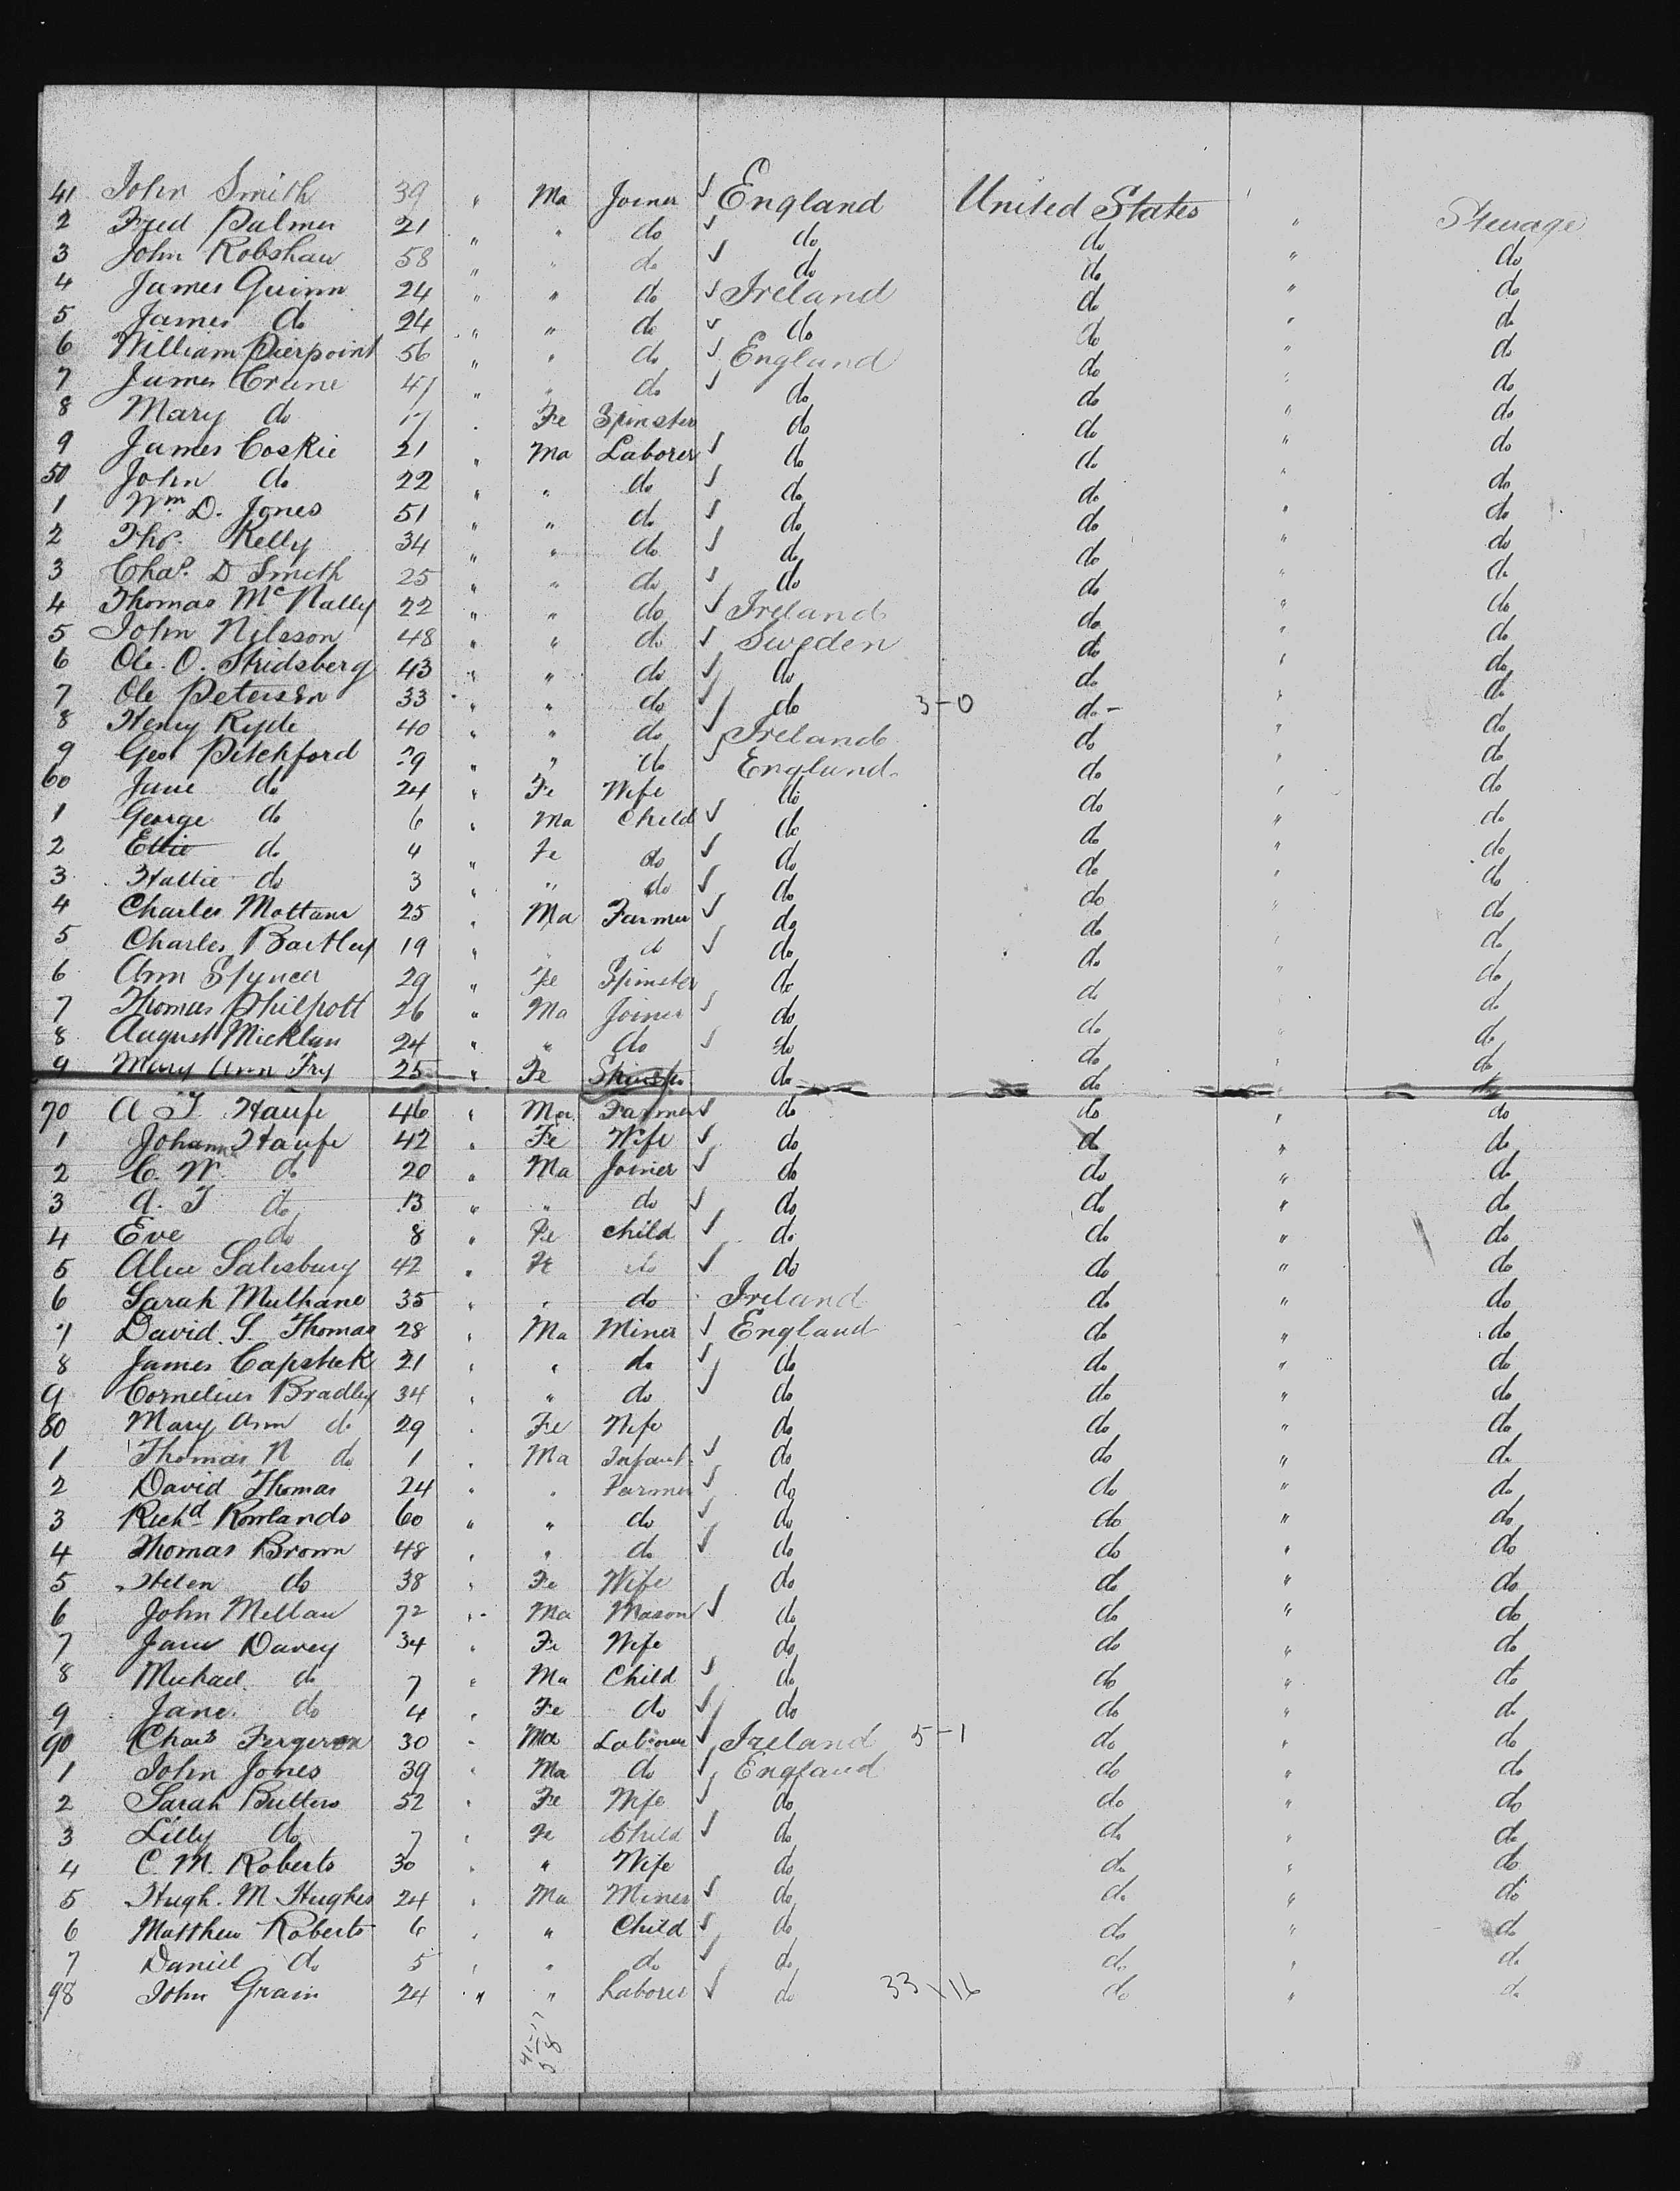 41 John Smith 39 " Ma Joiner ✓ England United States " Steerage
2 Fred Palmer 21 " " do ✓ do do " do
3 John Robshaw 58 " " do ✓ do do " do
4 James Quinn 24 " " do ✓ Ireland do " do
5 James do 24 " " do ✓ do do " do
6 William Pierpoint 56 " " do ✓ England do " do
7 James Crane 47 " " do ✓ do do " do
8 Mary do 17 " Fe Spinster do do " do
9 James Coskie 21 " Ma Laborer ✓ do do " do
50 John do 22 " " do ✓ do do " do
1 Wm D. Jones 51 " " do ✓ do do " do
2 Tho. Kelly 34 " " do ✓ do do " do
3 Chas. D Smith 25 " " do ✓ do do " do
4 Thomas McNally 22 " " do ✓ Ireland do " do
5 John Nilsson 48 " " do ✓ Sweden do " do
6 Ole. O. Stridsberg 43 " " do ✓ do do " do
7 Ole Peterson 33 " " do ✓ do 3-0 do - " do
8 Henry Ryde 40 " " do ✓ Ireland do " do
9 Geo Pitchford 29 " " do ✓ England do " do
60 Jane do 24 " Fe Wife do do " do
1 George do 6 " Ma Child ✓ do do " do
2 Ettie do 4 " Fe do ✓ do do " do
3 Hattie do 3 " " do ✓ do do " do
4 Charles Mottam 25 " Ma Farmer ✓ do do " do
5 Charles Bartley 19 " " do ✓ do do " do
6 Ann Spencer 29 " Fe Spinster do do " do
7 Thomas Philpott 26 " Ma Joiner ✓ do do " do
8 August Micklun 24 " " do ✓ do do " do
9 Mary Ann Fry 25 " Fe Spinster do do " do
70 A T Haufe 46 " Ma Farmer ✓ do do " do
1 Johanna Haufe 42 " Fe Wife ✓ do do " do
2 C. W. do 20 " Ma Joiner ✓ do do " do
3 A. T do 13 " " do ✓ do do " do
4 Eve do 8 " Fe child ✓ do do " do
5 Alice Salisbury 42 " Fe do ✓ do do " do
6 Sarah Mulhane 35 " " do Ireland do " do
7 David S. Thomas 28 " Ma Miner ✓ England do " do
8 James Capstick 21 " " do ✓ do do " do
9 Cornelius Bradley 34 " " do ✓ do do " do
80 Mary Ann do 29 " Fe Wife do do " do
1 Thomas N do 1 " Ma Infant ✓ do do " do
2 David Thomas 24 " " Farmer ✓ do do " do
3 Richd Rowlands 60 " " do ✓ do do " do
4 Thomas Brown 48 " " do ✓ do do " do
5 Helen do 38 " Fe Wife do do " do
6 John Mellau 72 " Ma Mason ✓ do do " do
7 Jane Davey 34 " Fe Wife do do " do
8 Michael do 7 " Ma Child ✓ do do " do
9 Jane. do 4 " Fe do ✓ do do " do
90 Chars Fergerson 30 " Ma Laborer ✓ Ireland 5-1 do " do
1 John Jones 39 " Ma do ✓ England do " do
2 Sarah Butters 52 " Fe Wife ✓ do do " do
3 Lilly do 7 " Fe Child ✓ do do " do
4 C. M. Roberts 30 " " Wife do do " do
5 Hugh. M Hughes 24 " Ma Miner ✓ do do " do
6 Matthew Roberts 6 " " Child ✓ do do " do
7 Daniel do 5 " " do ✓ do do " do
98 John Grain 24 " " Laborer ✓ do 33 \ 16 do " do
41-17
58